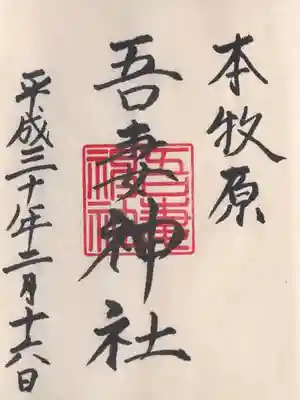 本牧原
吾妻神社
平成三十年二月十六日
吾妻神社